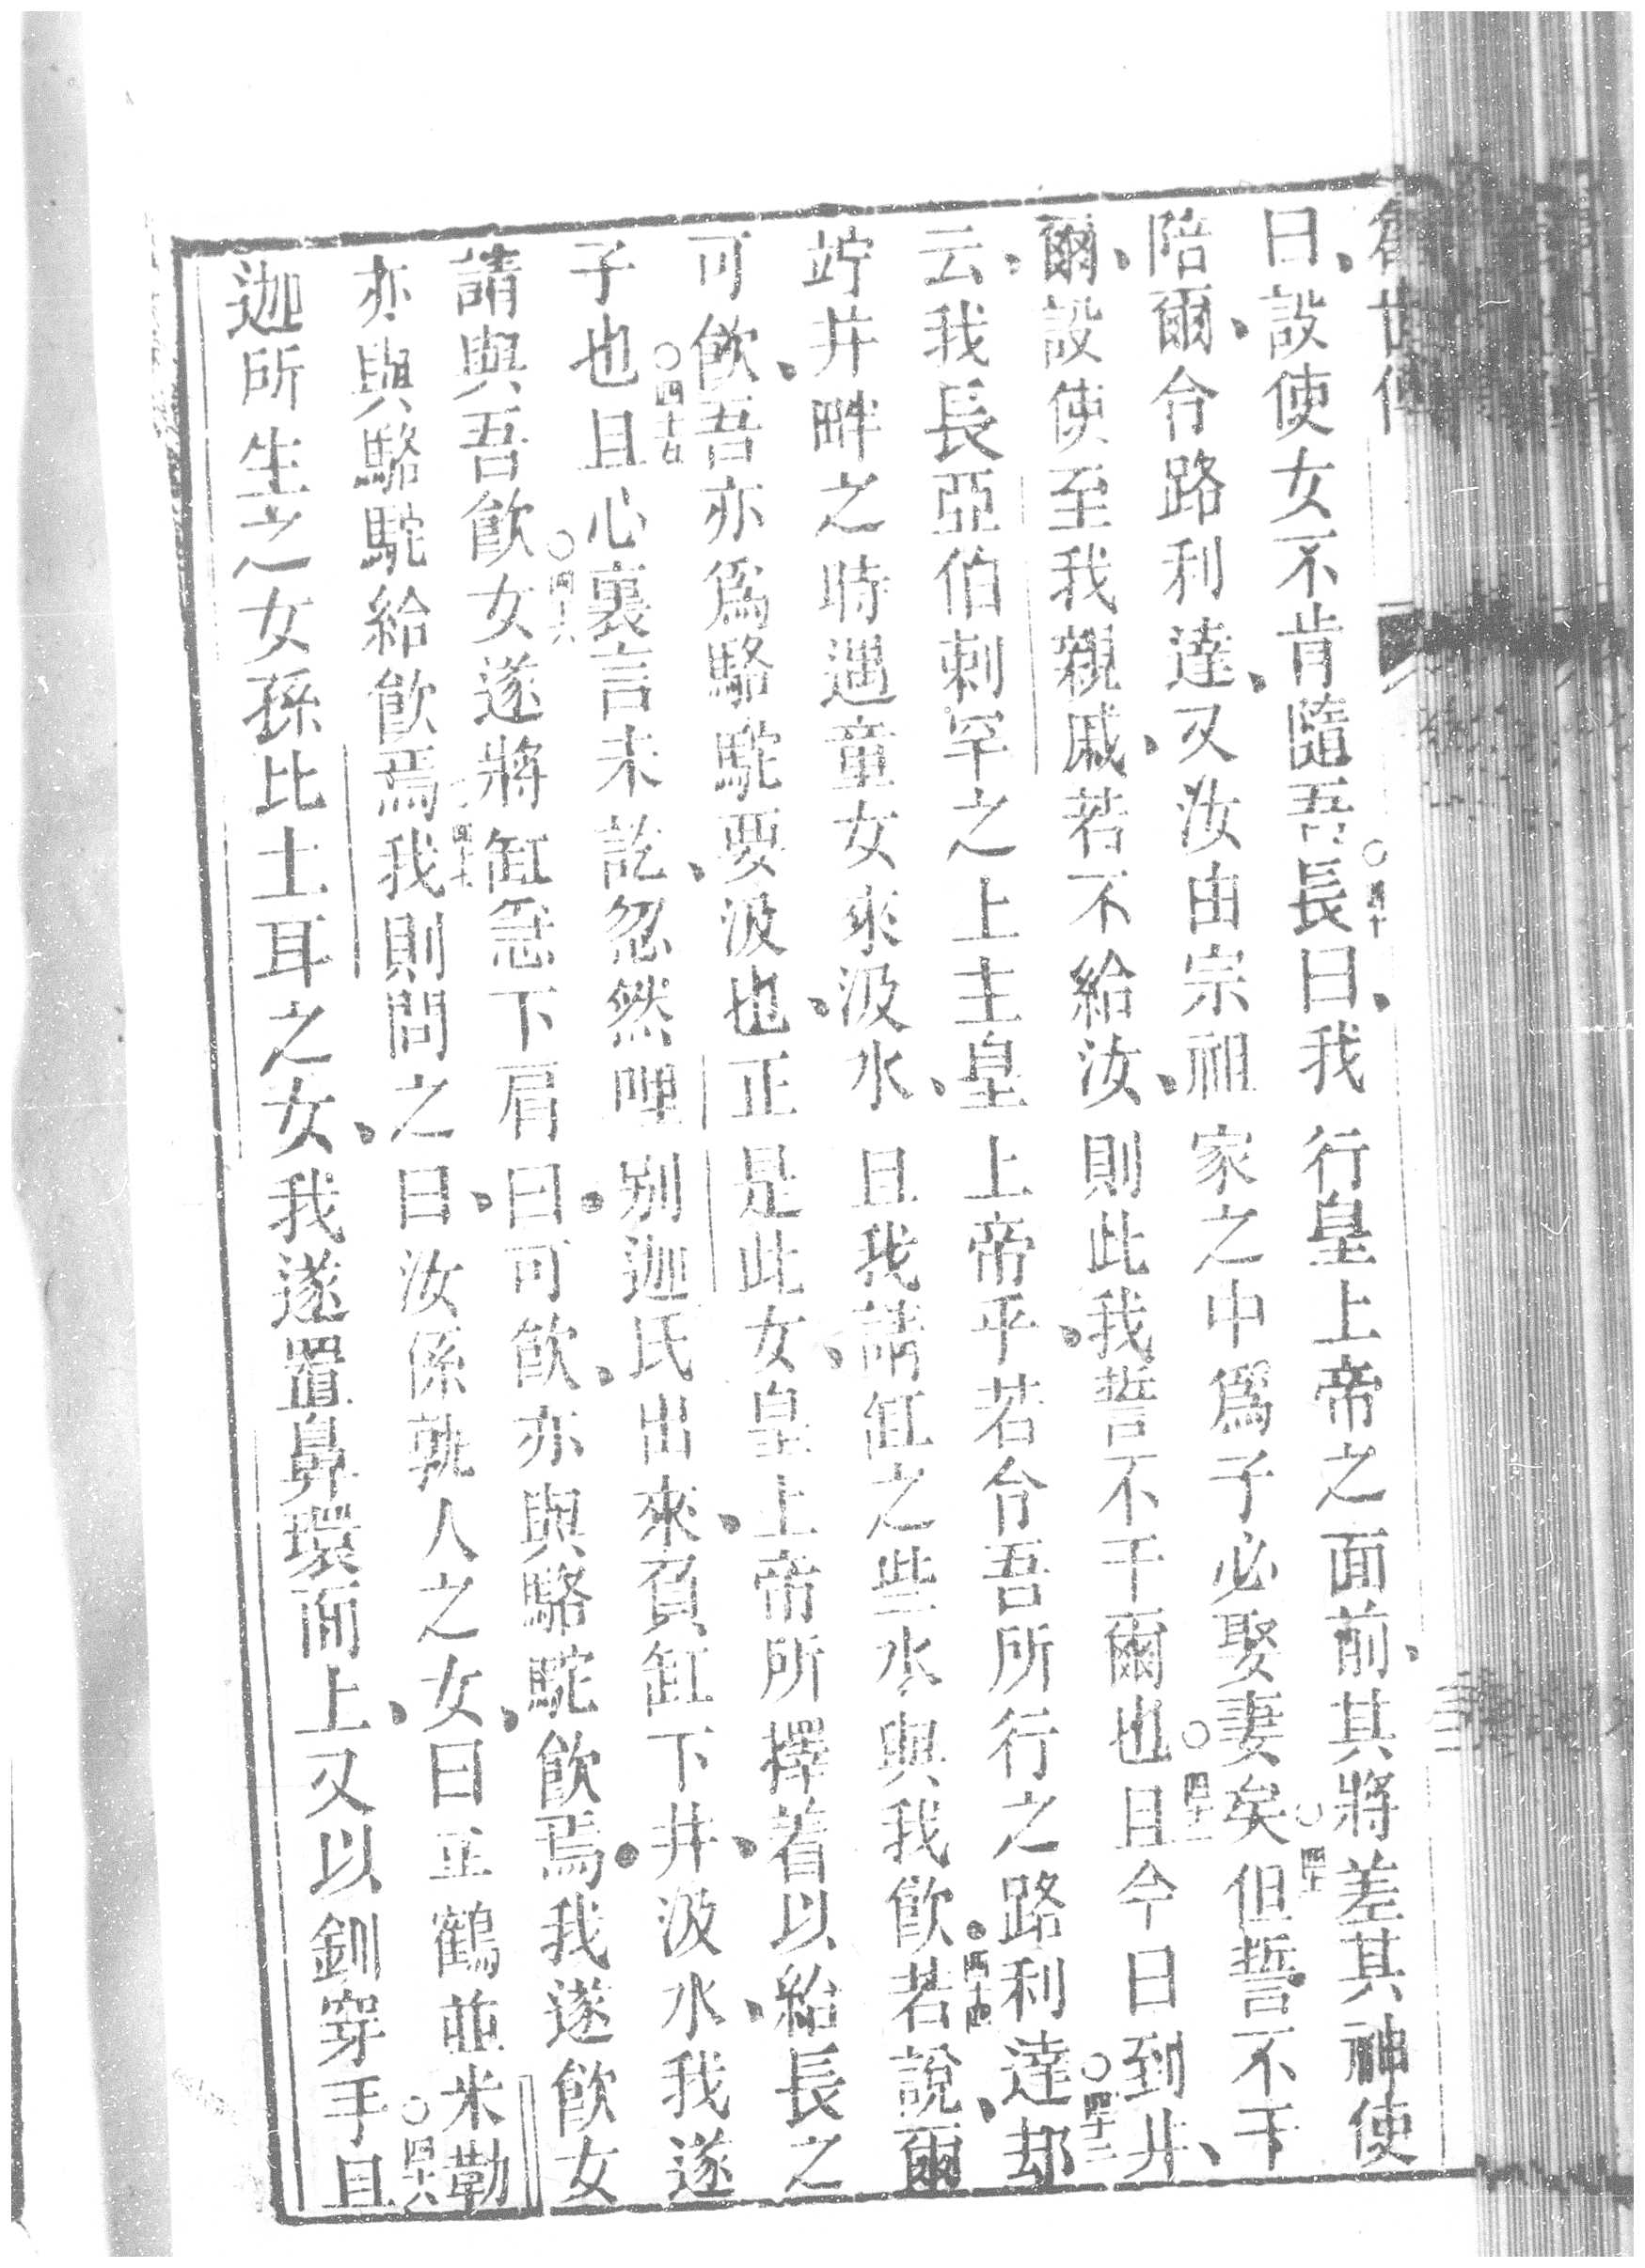 曰、設使女不肯隨吾長○四十曰、我行皇上帝之面前、其將差其神使
陪爾、令路利達、又汝由宗祖家之中爲子必娶妻矣○四一但誓不干
爾、設使至我親戚、若不給汝、則此我誓不干爾也○四二且今日到井、
云、我長亞伯剌罕之上主皇上帝乎、若令吾所行之路利達○四三却
竚井畔之時、遇童女來汲水、且我請缸之些水與我飲○四十四若說、爾
可飲、吾亦爲駱駝要汲也、正是此女、皇上帝所擇着以給長之
子也○四十五且心裏言未訖、忽然哩別迦氏出來、負缸下井、汲水、我遂
請與吾飲○四六女遂將缸忽下肩曰、可飲、亦與駱駝飲焉、我遂飲女
亦與駱駝給飲焉○四七我則問之曰、汝係孰人之女、女曰、亞鶴並米勒
迦所生之女孫比土耳之女、我遂置鼻環面上、又以釧穿手○四八且